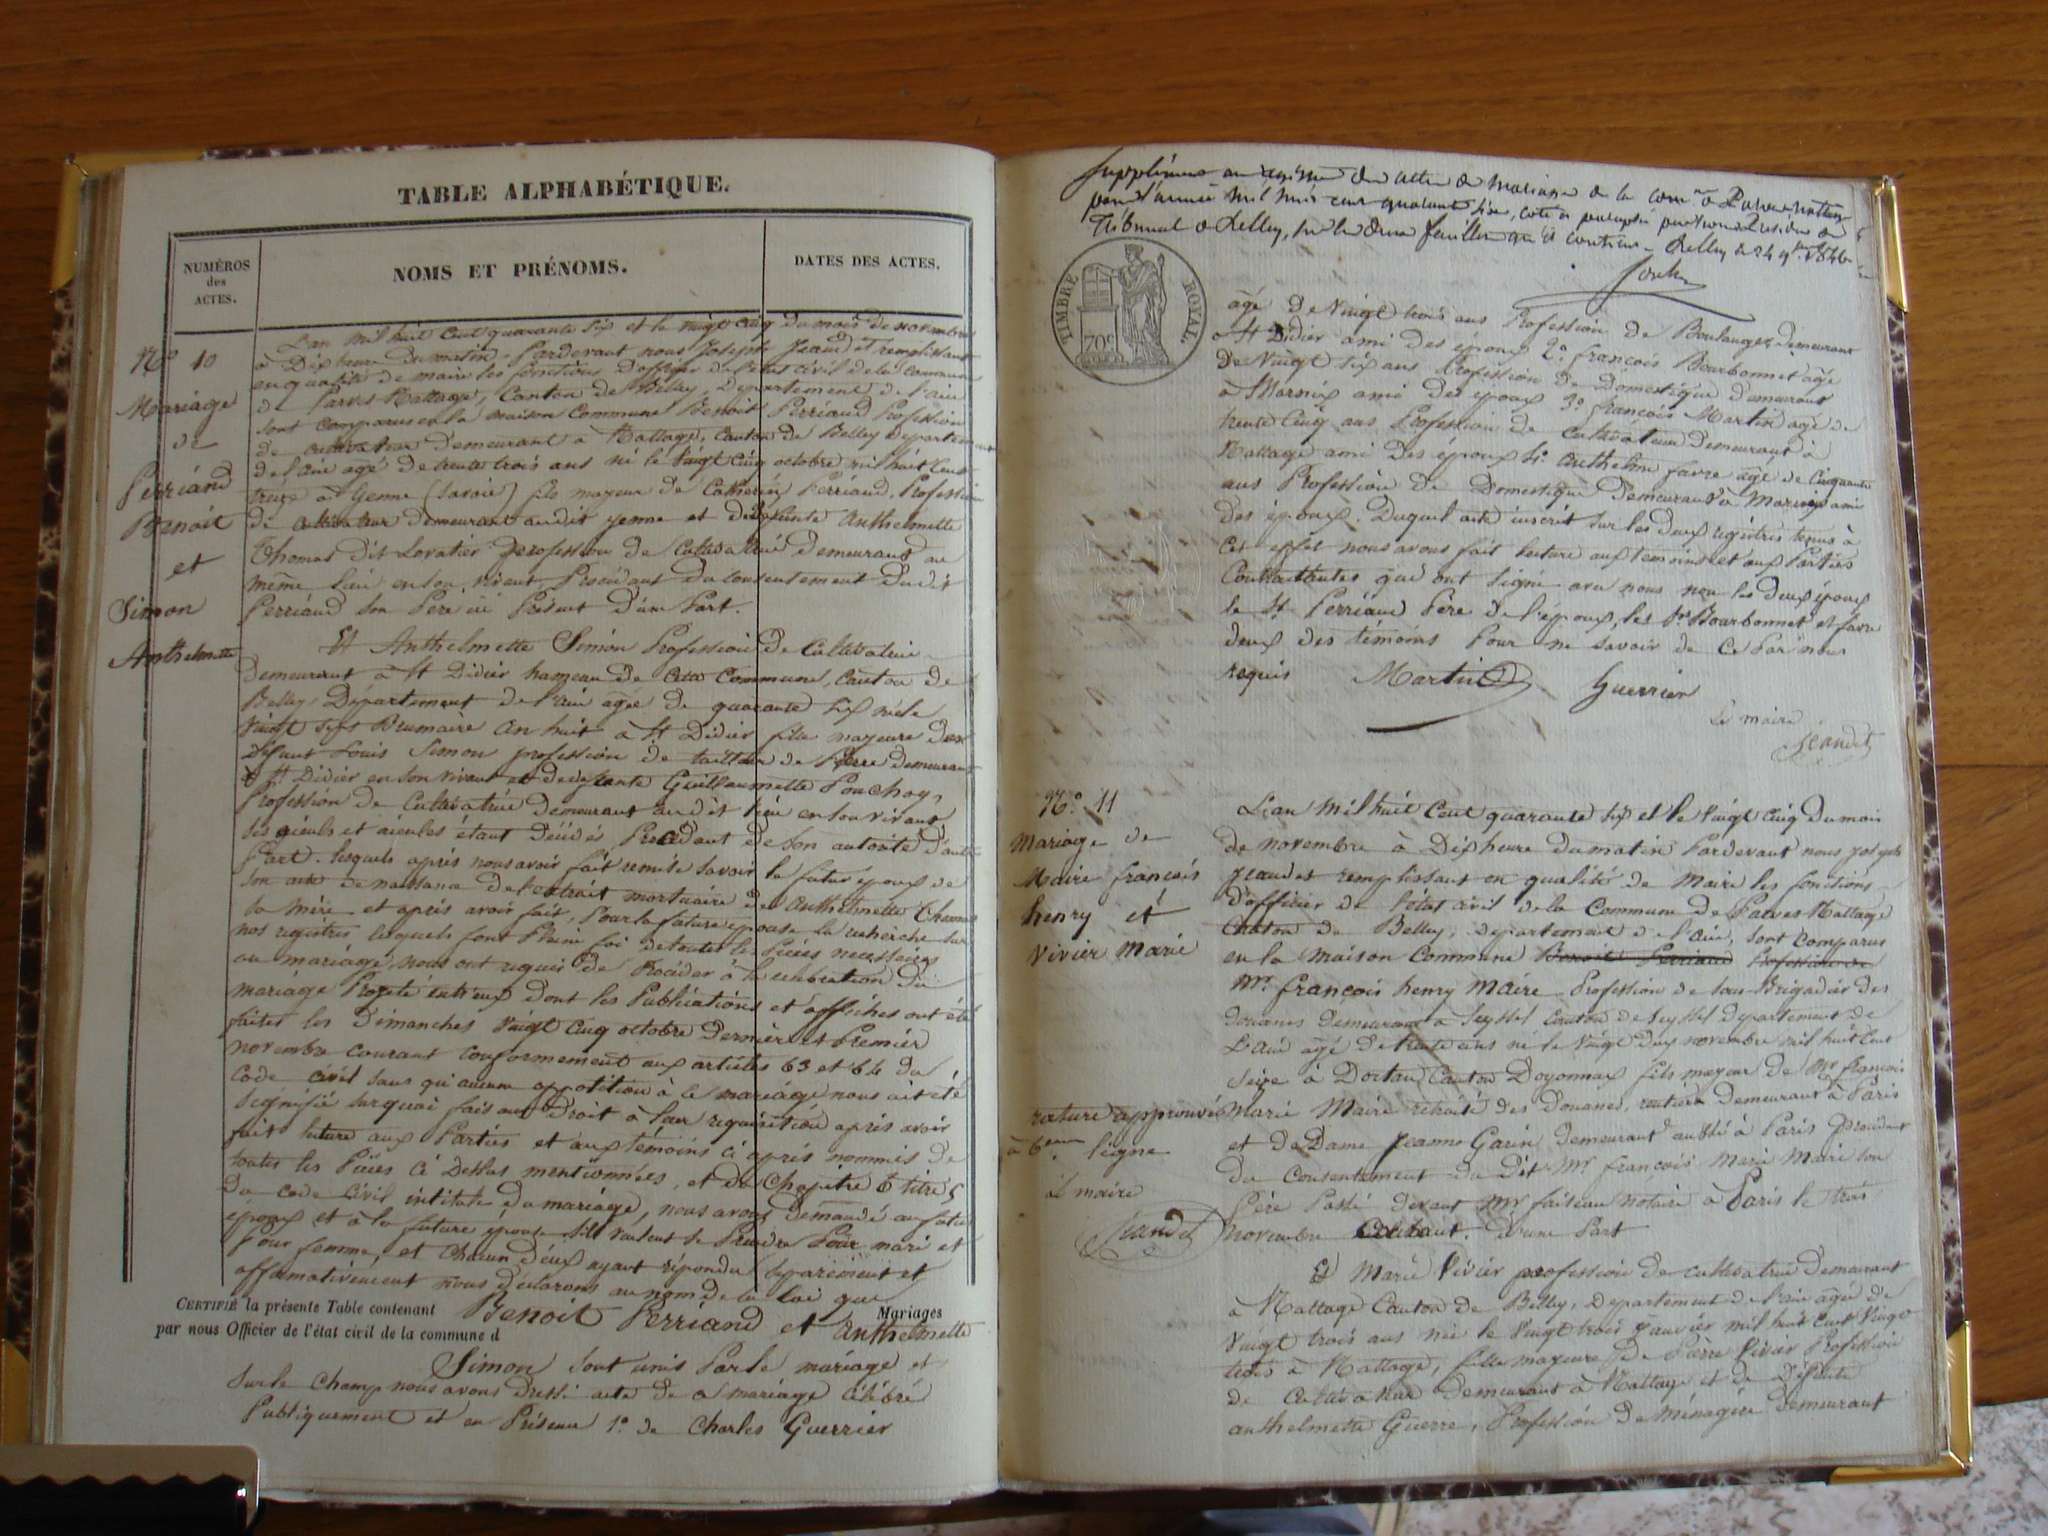 TABLE ALPHABÉTIQUE.
NUMÉROS
des
ACTES.
NOMS ET PRÉNOMS.
DATES DES ACTES.
N° 10
Mariage
de
Perriand
Benoit
et
Simon
Anthelmette
L'an mil huit Cent quarante six et le vingt cinq du mois de novembre
à Dix heure du matin Pardevant nous Joseph Jeandet remplissant
en qualité de maire les fonctions d'officier de l'état civil de la commune
de Parves Nattage, Canton de Belley, Département de l'ain
sont comparus en la maison Commune Benoit Perriand Profession
de cultivateur demeurant à Nattage, Canton de Belley Departement
de l'ain agé de trente trois ans né le vingt cinq octobre mil huit Cent
treize à Yenne (Savoie) fils mayeur de Perriand, Profession
de cultivateur demeurant audit yenne et de défunte Anthelmette
Thomas dit Lovatier profession de Cultivatrice demeurant au
même lieu en son vivant Procédant du Consentement dudit
Perriand son Père ici Présent d'une Part.
Et Anthelmette Simon Profession de Cultivatrice
demeurant à St Didier hameau de Cette Commune, Canton de
Belley, Département de l'ain agée de quarante six née le
vingt sept Brumaire an huit à St Didier fille mayeure de
défunt Louis Simon profession de tailleur de Pierre demeurant
à St Didier en son vivant et de défunte Guillaumette Pouchoy,
Profession de Cultivatrice demeurant audit lieu en son vivant,
ses aïeuls et aïeules étant Décédés Procédant de son autorité d'autre
Part. lesquels après nous avoir fait remise savoir le futur époux de
son acte de naissance de l'extrait mortuaire de Anthelmette Thomas
sa mère et après avoir fait, Pour la future épouse la recherche sur
nos registres lesquels font Pleine foi de toutes les Pièces necessaires
au mariage, nous ont requis de Procéder à la célébration du
mariage Projeté entr'eux dont les Publications et affiches ont été
faites les Dimanches vingt cinq octobre dernier et Premier
novembre courant conformement aux articles 63 et 64 du
Code civil sans qu'aucune opposition à le mariage nous ait été
signifié sur quoi faisant Droit à leur requisition après avoir
fait lecture aux Parties et aux témoins ci après nommés de
toutes les Pièces ci Dessus mentionnées, et du Chapitre 6 titre 5
du code Civil intitulé du mariage, nous avons demandé au futur
époux et à la future épouse s'ils veulent se Prendre Pour mari et
Pour femme, et chacun d'eux ayant répondu séparément et
affirmativement nous déclarons au nom de la loi que
CERTIFIÉ la présente Table contenant Benoit Perriand et Anthelmette Mariages
par nous Officier de l'état civil de la commune d
Simon sont unis Par le mariage et
sur le champ nous avons dressé acte de ce mariage célébré
Publiquement et en Présence 1° de Charles Guerrier
Supplément au registre des actes de mariage de la comne de Parves Nattage
pour l'année mil huit cent quarante six, coté et paraphé par nous Président du
Tribunal de Belley, sur les deux feuilles qu'il contient. Belley le 24 9bre 1846
TIMBRE ROYAL
70c
agé de vingt trois ans Profession de Boulanger demeurant
à St Didier ami des époux 2° françois Bourbonnet agé
de vingt six ans Profession de Domestique demeurant
à ami des époux 3° françois Martin agé de
trente Cinq ans Profession de cultivateur demeurant à
Nattage ami des époux 4° Anthelme favre agé de Cinquante
ans Profession de Domestique demeurant à ami
des époux. Duquel acte inscrit sur les deux registres tenus à
Cet effet nous avons fait lecture aux temoins et aux Parties
Contractantes qui ont signé avec nous non les deux époux
le St Perriand Père de l'époux, les Srs Bourbonnet et favre
deux des témoins Pour ne savoir de ce Par nous
requis Martin Guerrier
Le maire
Jeandet
N° 11
Mariage de
Maire françois
henry et
Vivier Marie
rature approuvée
à 6eme ligne
Le maire
Jeandet
L'an mil huit Cent quarante six et le vingt cinq du mois
de novembre à Dix heure du matin Pardevant nous joseph
jeandet remplissant en qualité de Maire les fonctions
d'officier de l'état civil de la Commune de Parves Nattage
Canton de Belley, departement de l'ain, sont comparus
en la maison Commune Benoit Perriand Profession de
Mr françois henry Maire Profession de sous Brigadier des
douanes demeurant à Seyssel Canton de Seyssel departement de
L'ain agé de trente ans né le vingt deux novembre mil huit Cent
seize à Dortan Canton Doyonnax fils mayeur de Mr françois
Marie Maire retraité des Douanes, rentier demeurant à Paris
et de Dame Jeanne Garin demeurant aussi à Paris Procédant
du Consentement du Dit Mr françois Marie Maire son
Père Passé devant Mr faiseau notaire à Paris le trois
novembre Courant. D'une Part
Et Marie Vivier profession de cultivatrice demeurant
à Nattage Canton de Belley, departement de l'ain agée de
vingt trois ans née le vingt trois janvier mil huit cent vingt
trois à Nattage, fille mayeure de Pierre Vivier Profession
de Cultivateur demeurant à Nattage et de Défunte
anthelmette Guerre, Profession de Ménagère demeurant